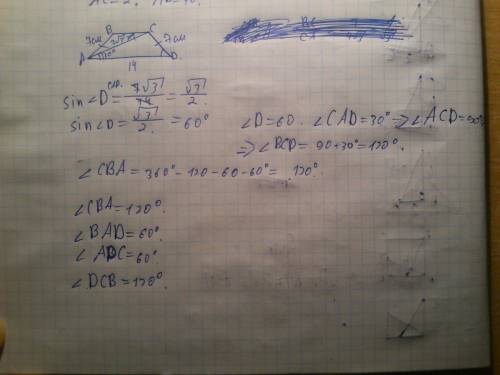 B C
7см 7см
A D
14
sin∠D = 7√3/14 = √3/2.
sin∠D = √3/2 = 60°
∠D=60. ∠CAD=30° => ∠ACD=90°
=> ∠BCD = 90+30°=120°.
∠CBA=360°-120-60-60°= 120°.
∠CBA=120°.
∠BAD=60°.
∠ADC=60°.
∠DCB=120°.